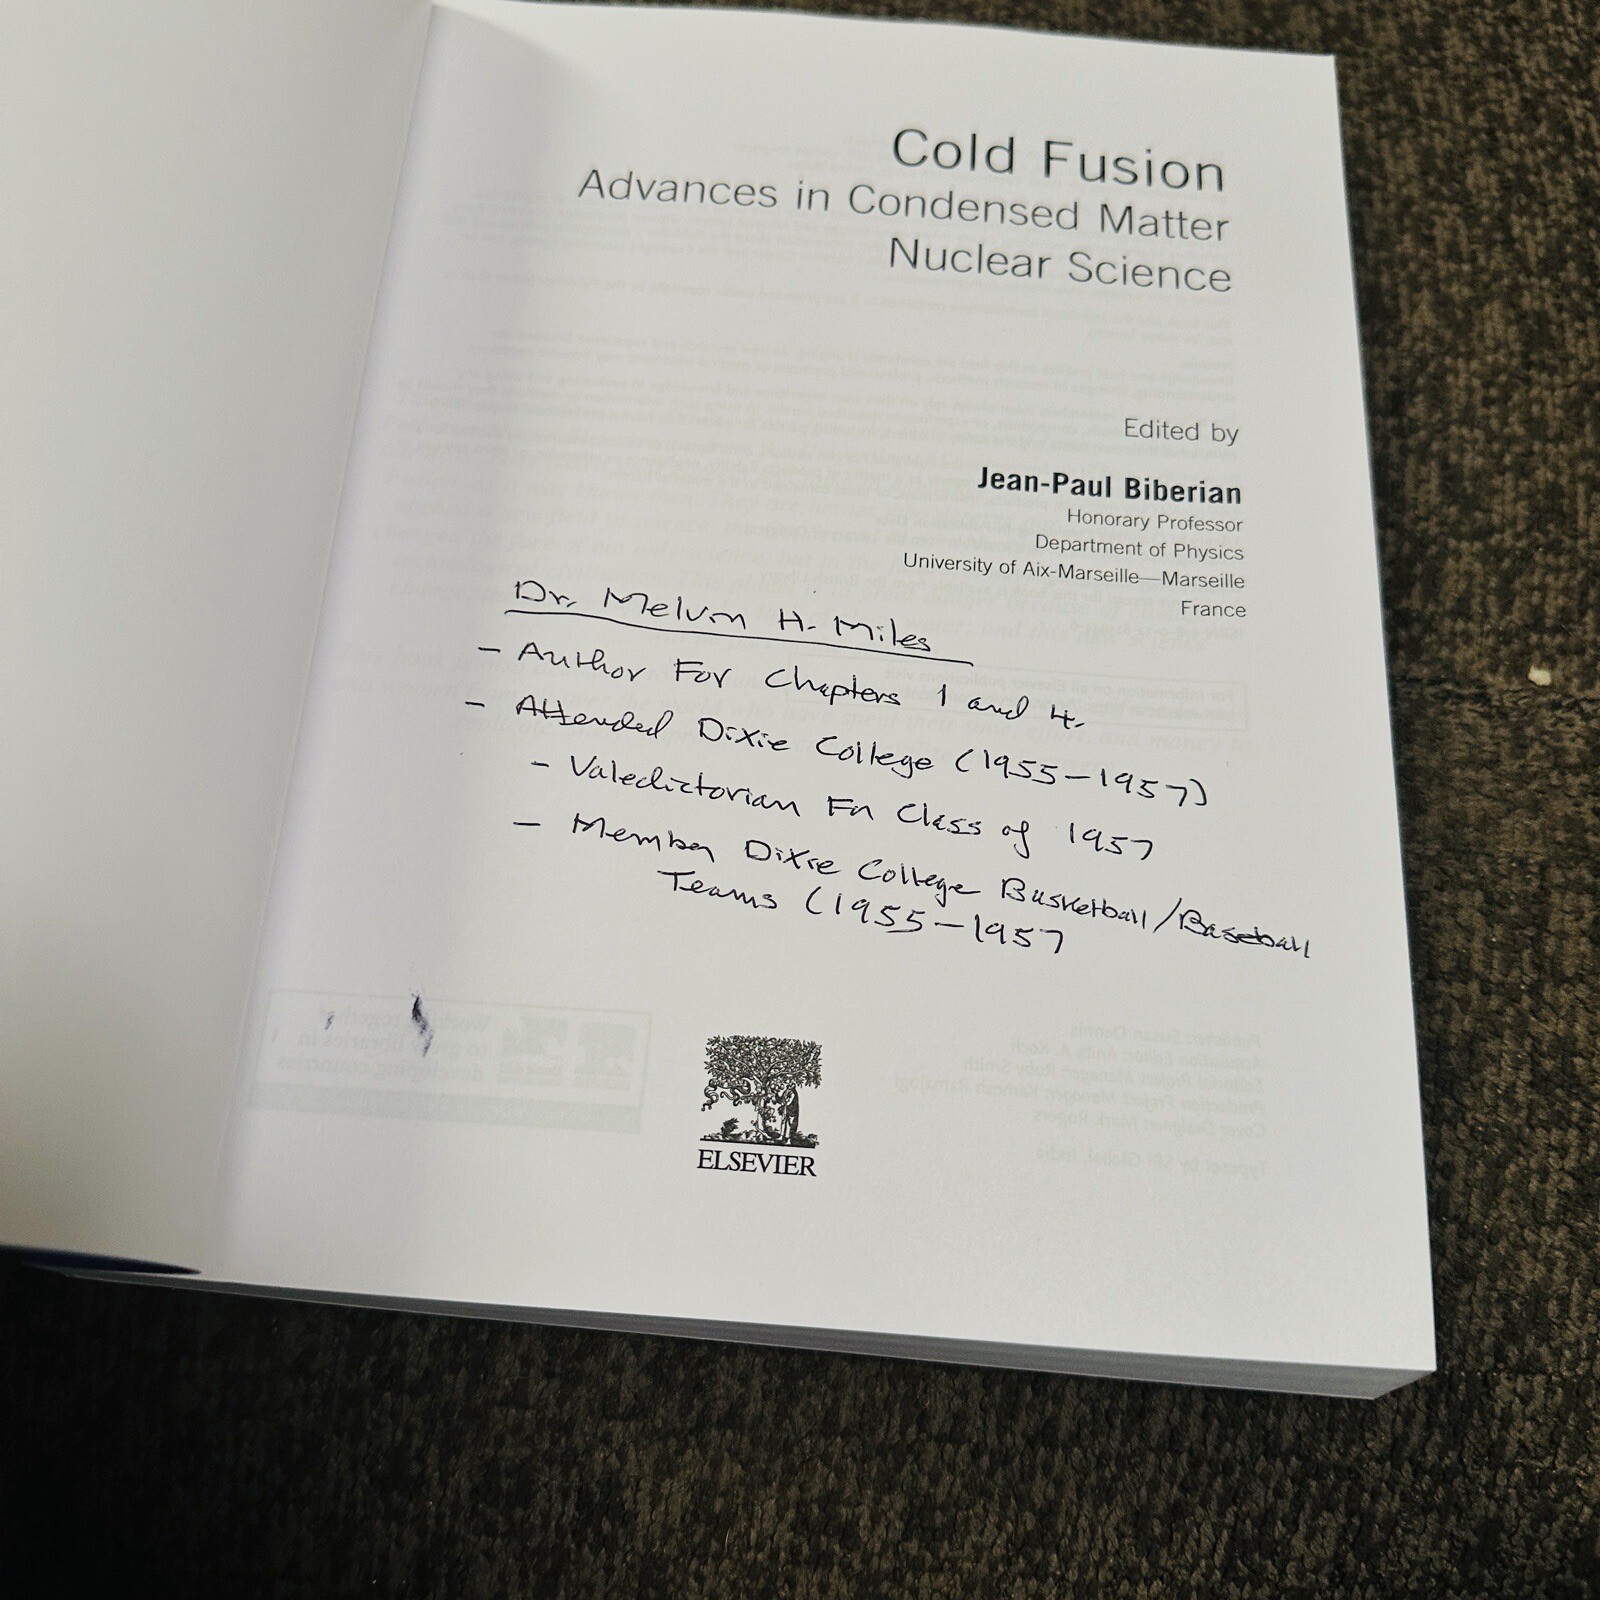 Cold Fusion
Advances in Condensed Matter
Nuclear Science
Edited by
Jean-Paul Biberian
Honorary Professor
Department of Physics
University of Aix-Marseille—Marseille
France
Dr. Melvin H. Miles
- Author For Chapters 1 and 4.
- Attended Dixie College (1955-1957)
- Valedictorian For Class of 1957
- Member Dixie College Basketball/Baseball
Teams (1955-1957
ELSEVIER